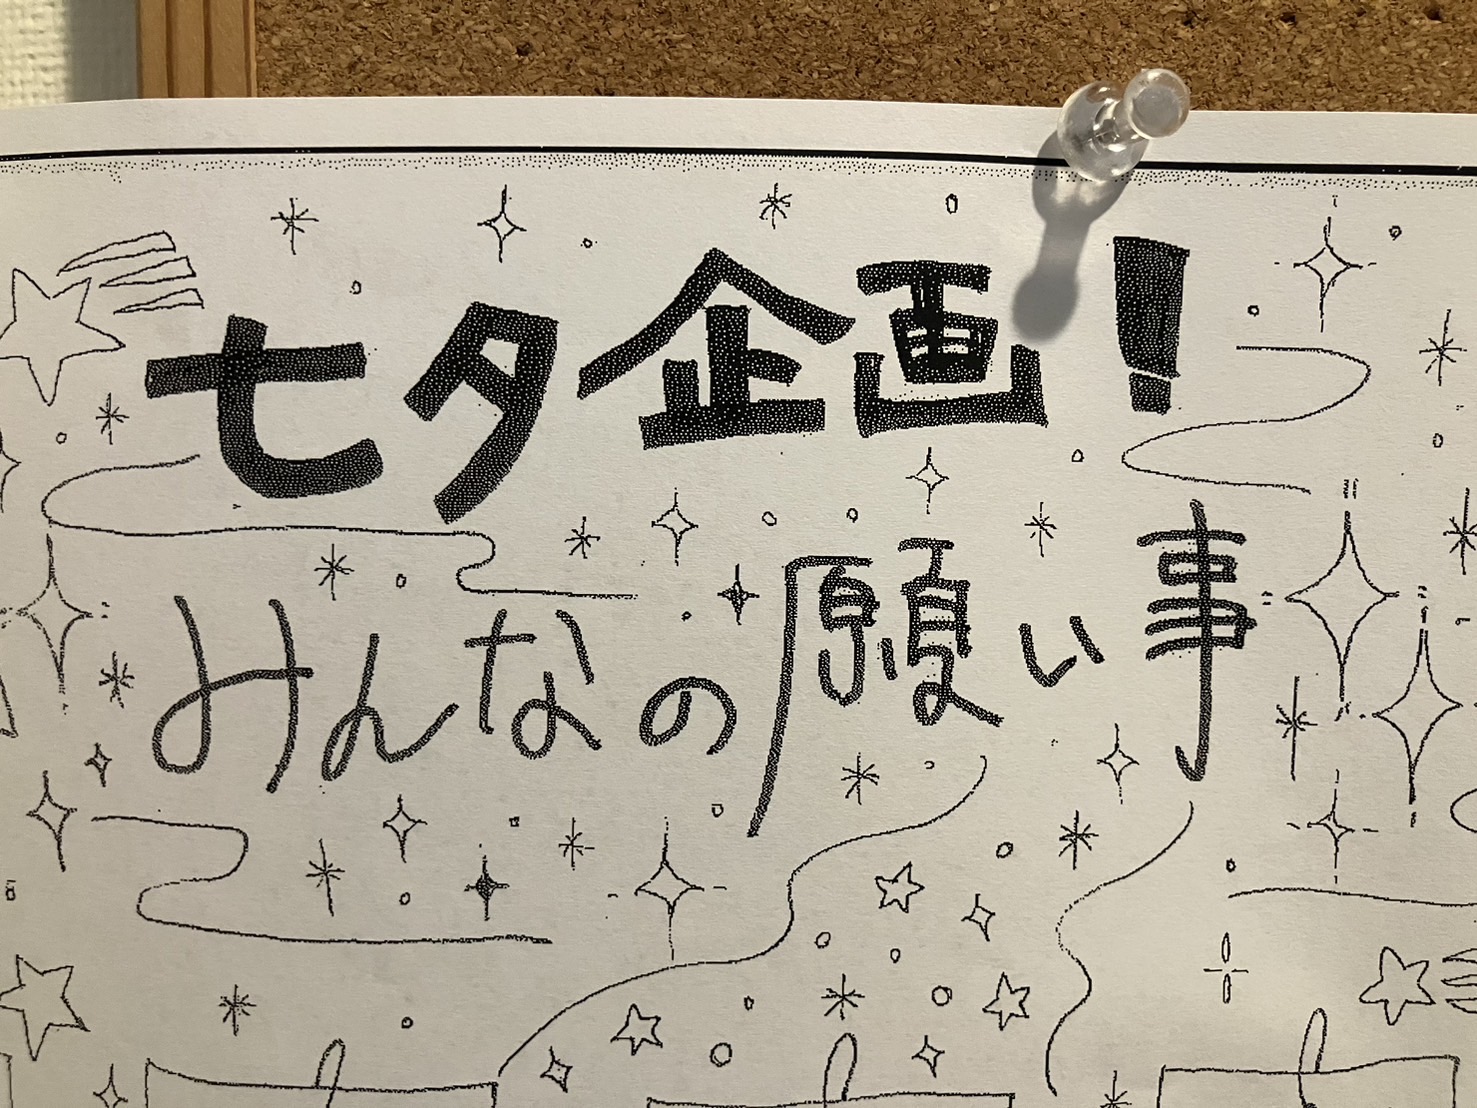 七夕企画!
みんなの願い事